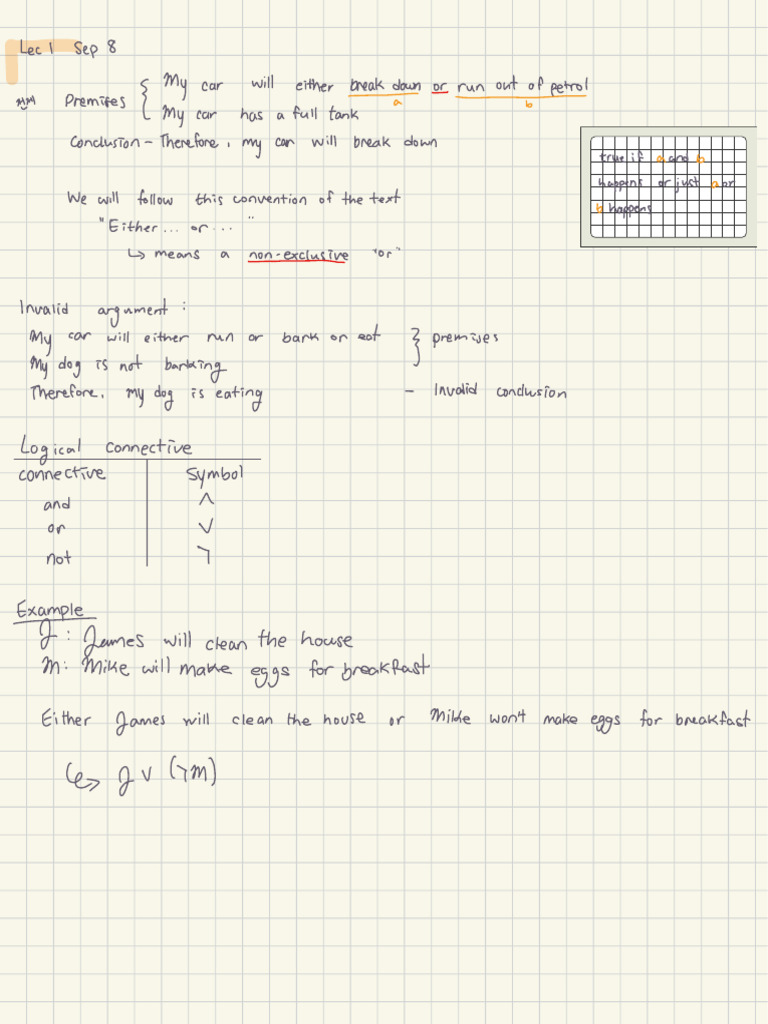 Lec 1 Sep 8
Premises { My car will either break down or run out of petrol
a b
My car has a full tank
Conclusion – Therefore, my car will break down
true if a and b
happens or just a or
b happens
We will follow this convention of the text
"Either... or... "
↳ means a non-exclusive "or"
Invalid argument :
My car will either run or bark or eat } premises
My dog is not barking
Therefore, my dog is eating – Invalid conclusion
Logical connective
connective symbol
and ∧
or ∨
not ¬
Example
J : James will clean the house
M: Mike will make eggs for breakfast
Either James will clean the house or Mike won't make eggs for breakfast
↪ J ∨ (¬M)